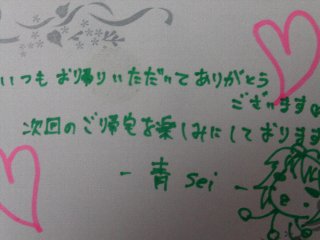 いつもお帰りいただいてありがとう
ございます
次回のご帰宅を楽しみにしております
- 青 sei -